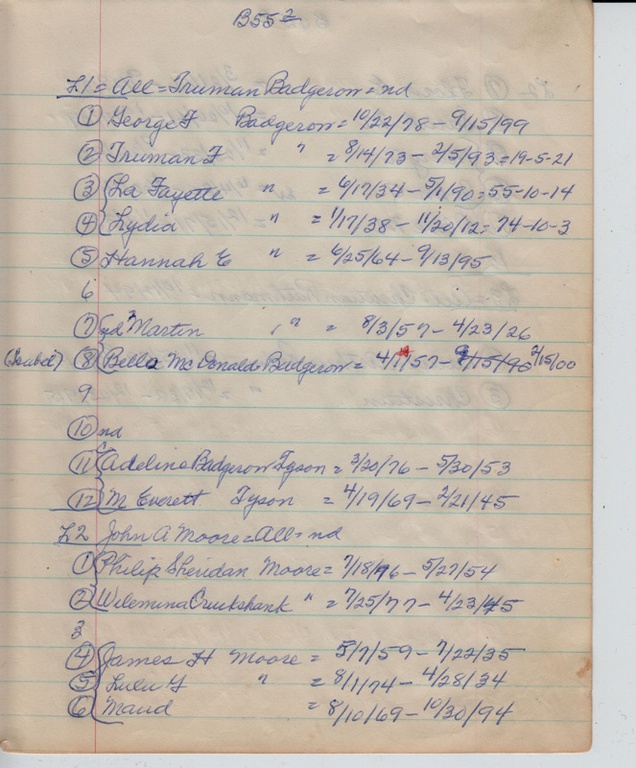 B55 2
L1 = All = Truman Badgerow = nd
① George F Badgerow = 10/22/78 - 9/15/99
② Truman F " = 8/14/73 - 2/5/93 = 19-5-21
③ La Fayette " = 6/17/34 - 5/1/90 = 55-10-14
④ Lydia " = 1/17/38 - 11/20/12 = 74-10-3
⑤ Hannah E " = 6/25/64 - 9/13/95
6
⑦ nd Martin " = 8/3/57 - 4/23/26
(Isabel) ⑧ Bella McDonald Badgerow = 4/1/57 - 2/15/00
9
⑩ nd
⑪ Adeline Badgerow Tyson = 3/20/76 - 5/30/53
⑫ M Everett Tyson = 4/19/69 - 2/21/45
L2 John A Moore = All = nd
① Philip Sheridan Moore = 7/18/76 - 5/27/54
② Wilemina Cruikshank " = 7/25/77 - 4/23/45
3
④ James H Moore = 5/7/59 - 7/22/35
⑤ Lulu " = 8/1/74 - 4/28/34
⑥ Maud = 8/10/69 - 10/30/94